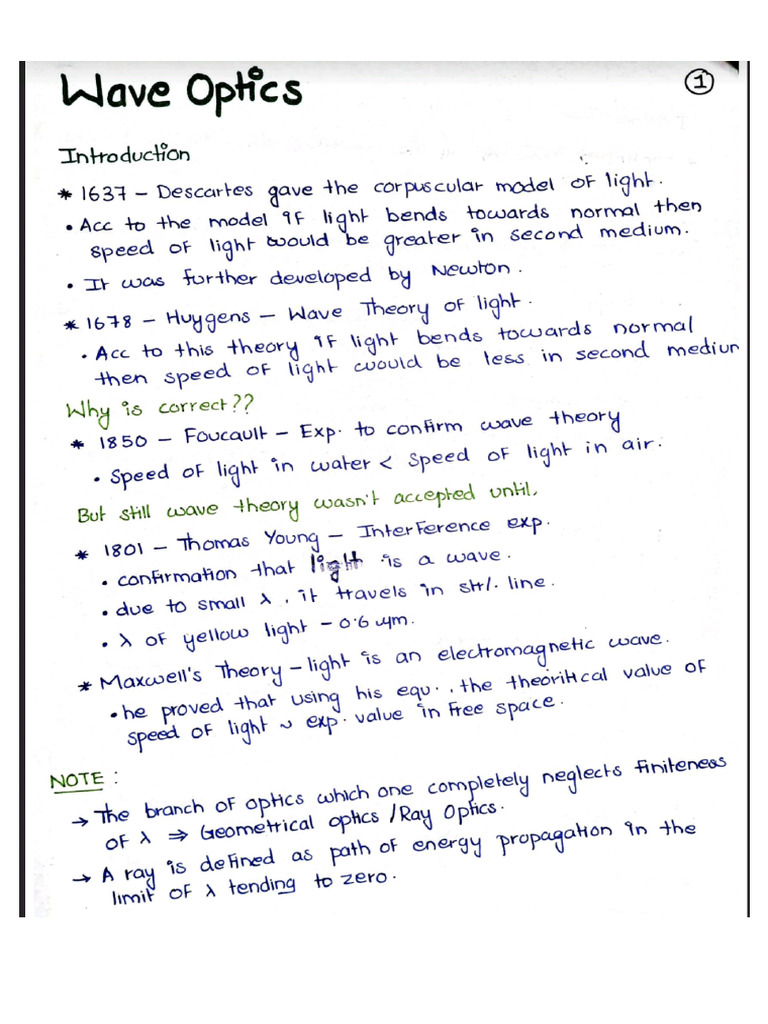 Wave Optics
①
Introduction
* 1637 – Descartes gave the corpuscular model of light.
• Acc to the model if light bends towards normal then
speed of light would be greater in second medium.
• It was further developed by Newton.
* 1678 – Huygens – Wave Theory of light.
• Acc to this theory if light bends towards normal
then speed of light would be less in second medium
Why is correct??
* 1850 – Foucault – Exp. to confirm wave theory
• Speed of light in water < Speed of light in air.
But still wave theory wasn't accepted until,
* 1801 – Thomas Young – Interference exp.
• confirmation that light is a wave.
• due to small λ, it travels in st/. line.
• λ of yellow light – 0.6 µm.
* Maxwell's Theory – light is an electromagnetic wave.
• he proved that using his equ., the theoritical value of
speed of light ~ exp. value in free space.
NOTE :
→ The branch of optics which one completely neglects finiteness
of λ ⇒ Geometrical optics / Ray Optics.
→ A ray is defined as path of energy propagation in the
limit of λ tending to zero.